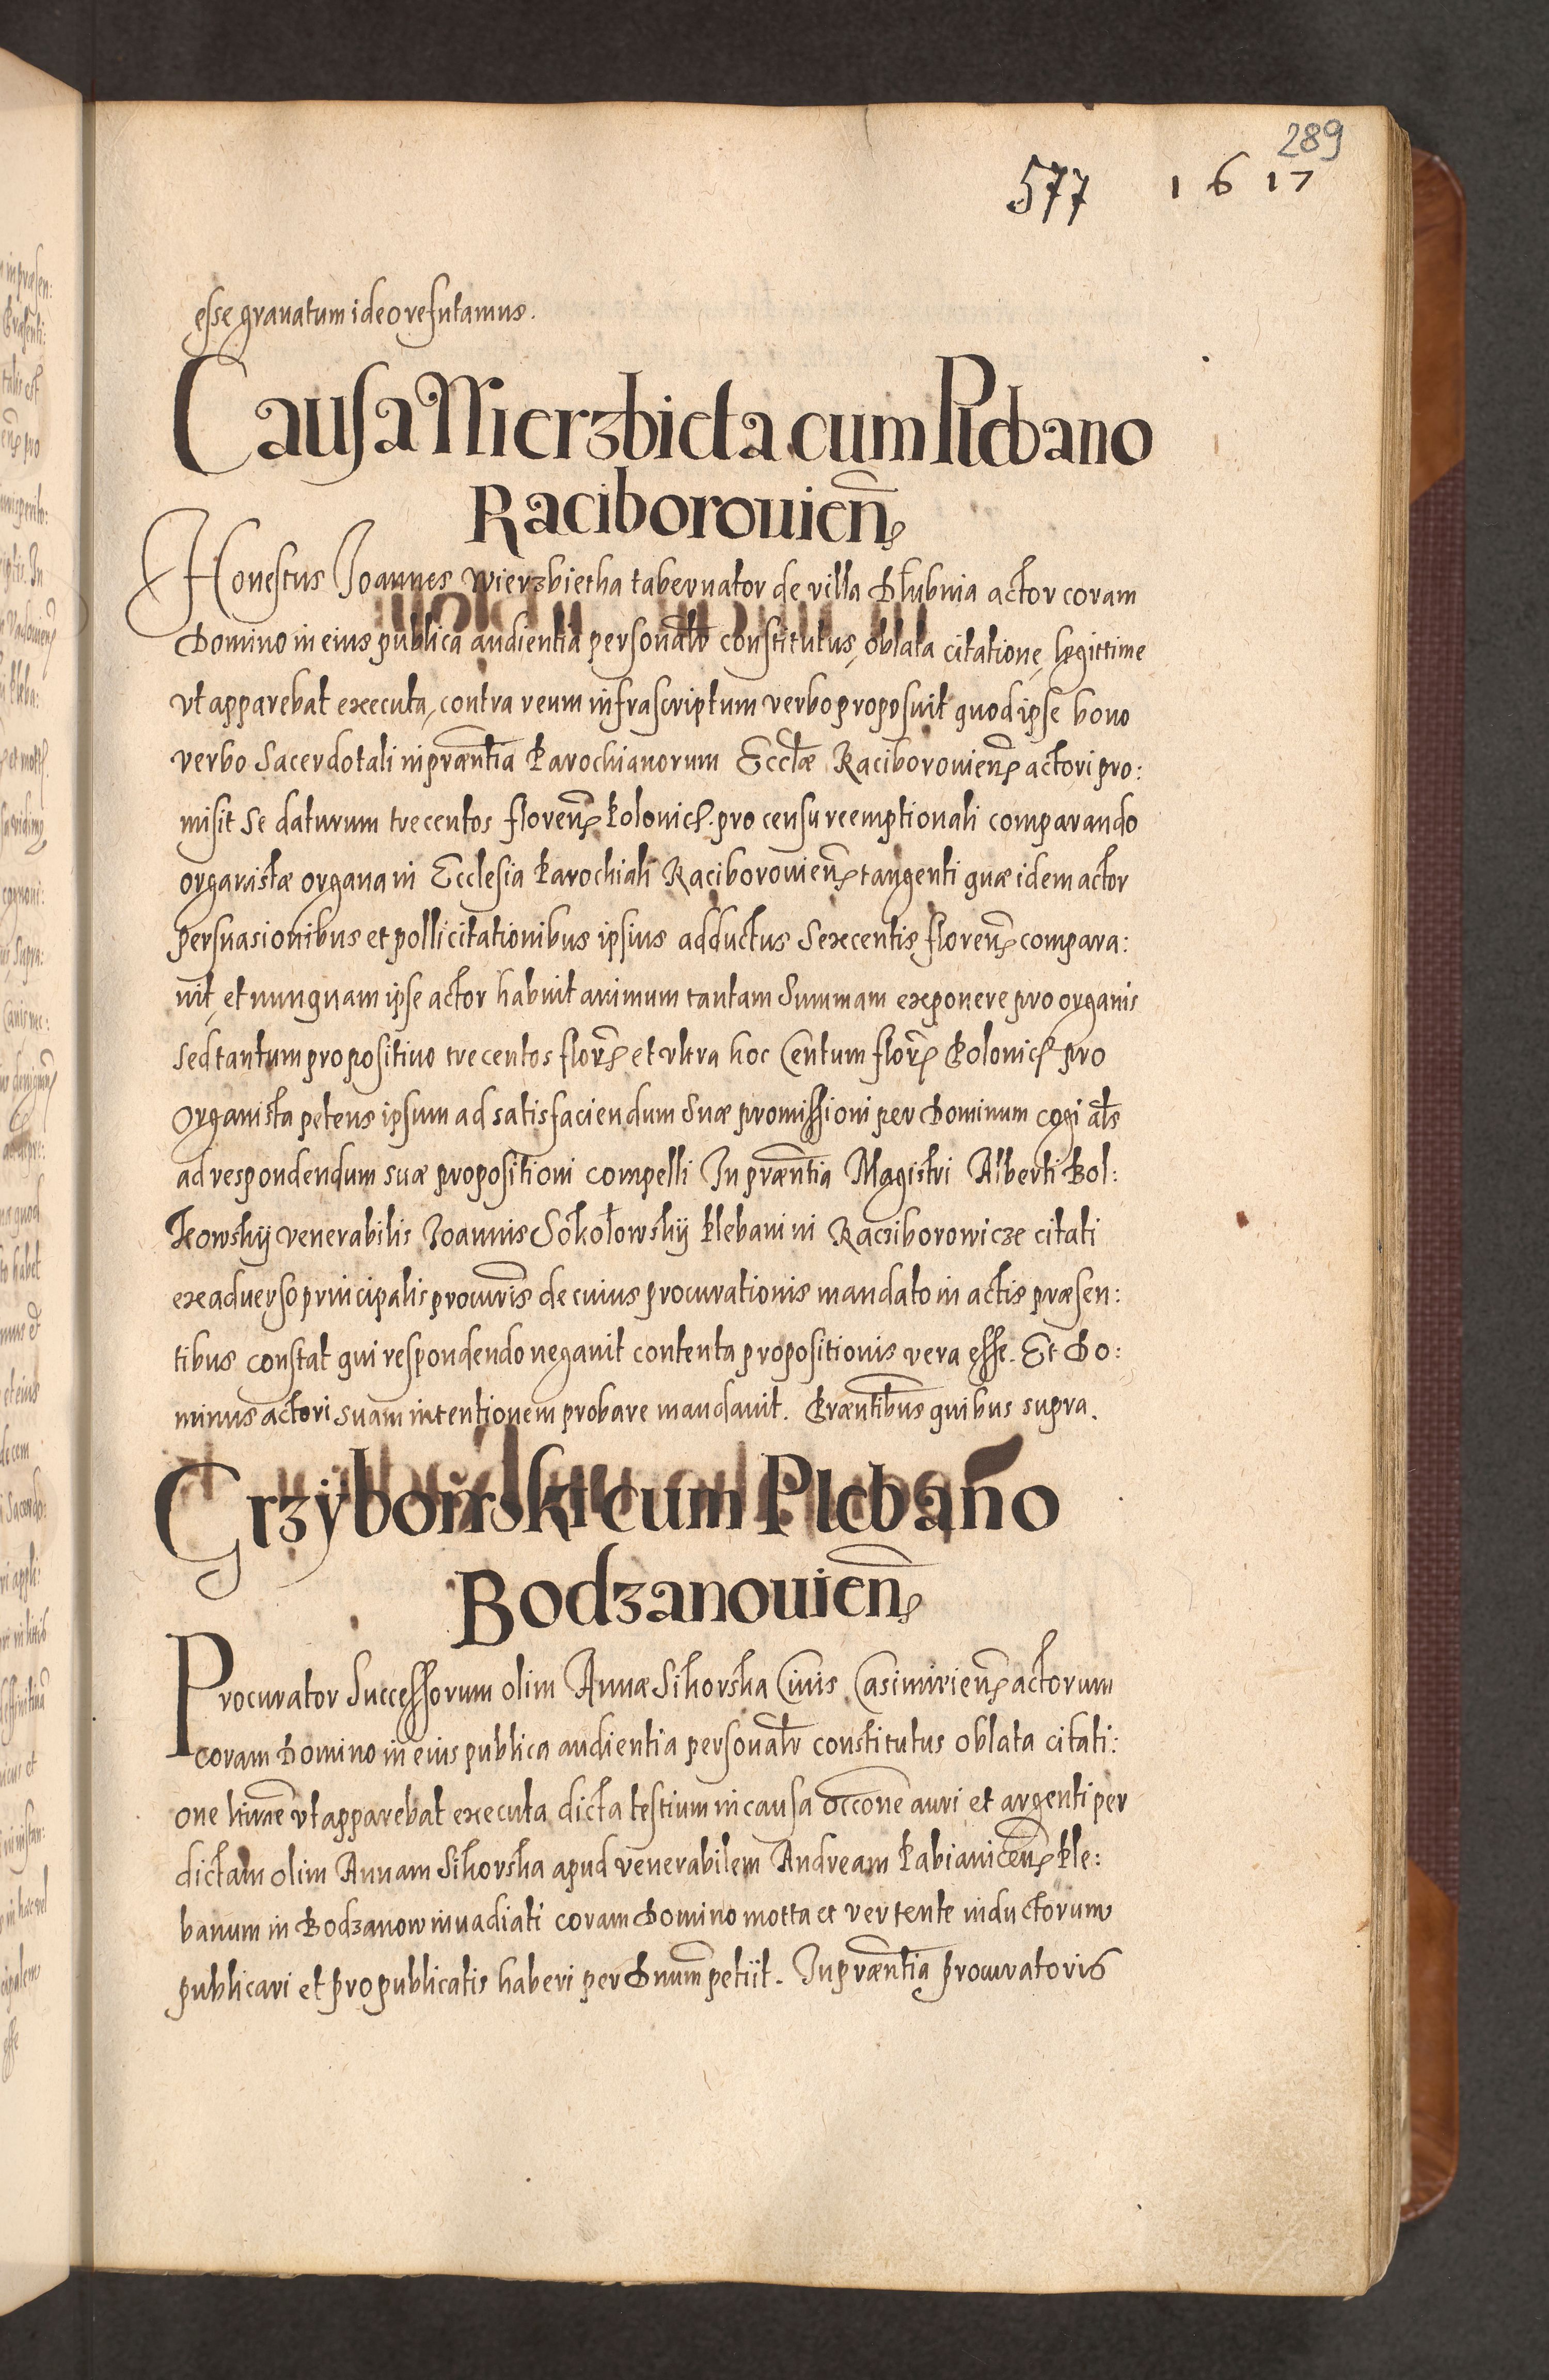 289
577 1617
esse grauatum ideo refutamus.
Causa Wierzbieta cum Plebano
Raciborouien̄
Honestus Joannes Wierzbietha tabernator de villa Dłubnia actor coram
Domino in eius publica audientia personalr constitutus, oblata citatione, legittime
vt apparebat executa, contra reum infrascriptum verbo proposuit quod ipse bono
verbo Sacerdotali in præntia Parochianorum Ecctæ Raciborouien̄ actori pro:
misit se daturum trecentos floren̄ Polonich. pro censu reemptionali comparando
organistæ organa in Ecclesia Parochiali Raciborouien̄ tangenti quæ idem actor
persuasionibus et pollicitationibus ipsius adductus sexcentis floren̄ compara:
uit, et nunquam ipse actor habuit animum tantam Summam exponere pro organis
sed tantum propositiuo trecentos flor̄ et vltra hoc Centum flor̄ Polonich pro
Organista petens ipsum ad satisfaciendum suæ promissioni per Dominum cogi als
ad respondendum suæ propositioni compelli In præntia Magistri Alberti Bol:
kowskij venerabilis Joannis Sokołowskij Plebani in Racziborowicze citati
ex aduerso principalis procuris de cuius procurationis mandato in actis præsen:
tibus constat qui respondendo negauit contenta propositionis vera esse. Et Do:
minus actori suam intentionem probare mandauit. Præntibus quibus supra.
Grzÿbowski cum Plebano
Bodzanouien̄
Procurator Successorum olim Annæ Sikorska Ciuis Casimirien̄ actorum
coram Domino in eius publica audientia personalr constitutus oblata citati:
one ltime vt apparebat executa dicta testium in causa occone auri et argenti per
dictam olim Annam Sikorska apud venerabilem Andream Pabianicen̄ Ple:
banum in Bodzanow inuadiati coram Domino motta et vertente inductorum
publicari et pro publicatis haberi per Dnum petijt. In præntia procuratoris